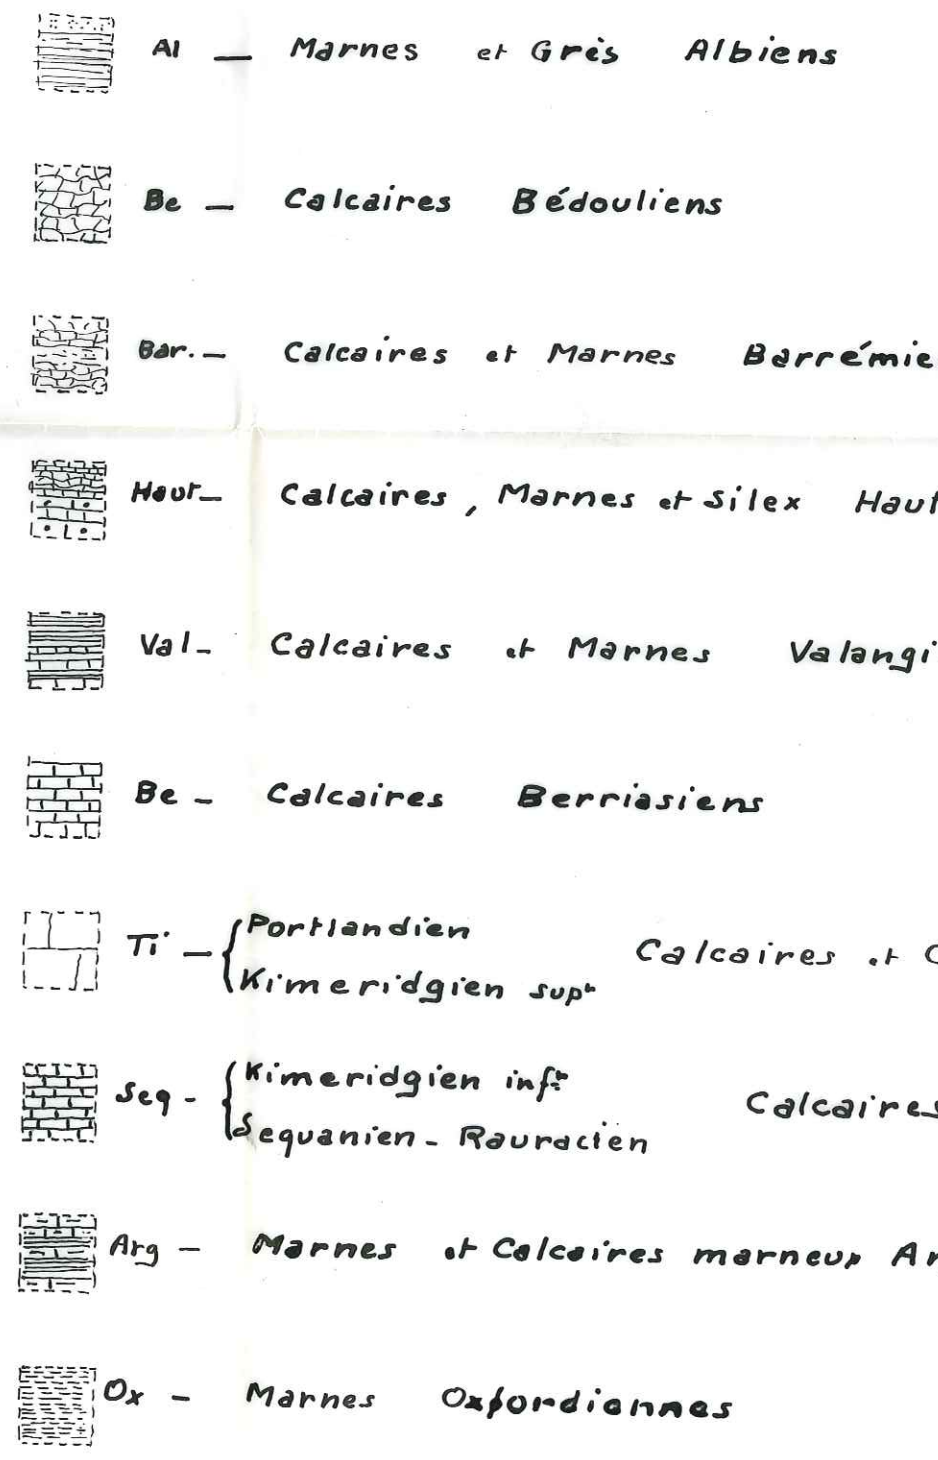 Al — Marnes et Grès Albiens
Be — Calcaires Bédouliens
Bar. — Calcaires et Marnes Barrémie
Haut — Calcaires, Marnes et Silex Haut
Val - Calcaires et Marnes Valangi
Be - Calcaires Berriasiens
Ti — { Portlandien
Kimeridgien supr Calcaires et C
Seq - { Kimeridgien infr
Sequanien - Rauracien Calcaires
Arg — Marnes et Calcaires marneux Ar
Ox — Marnes Oxfordiennes